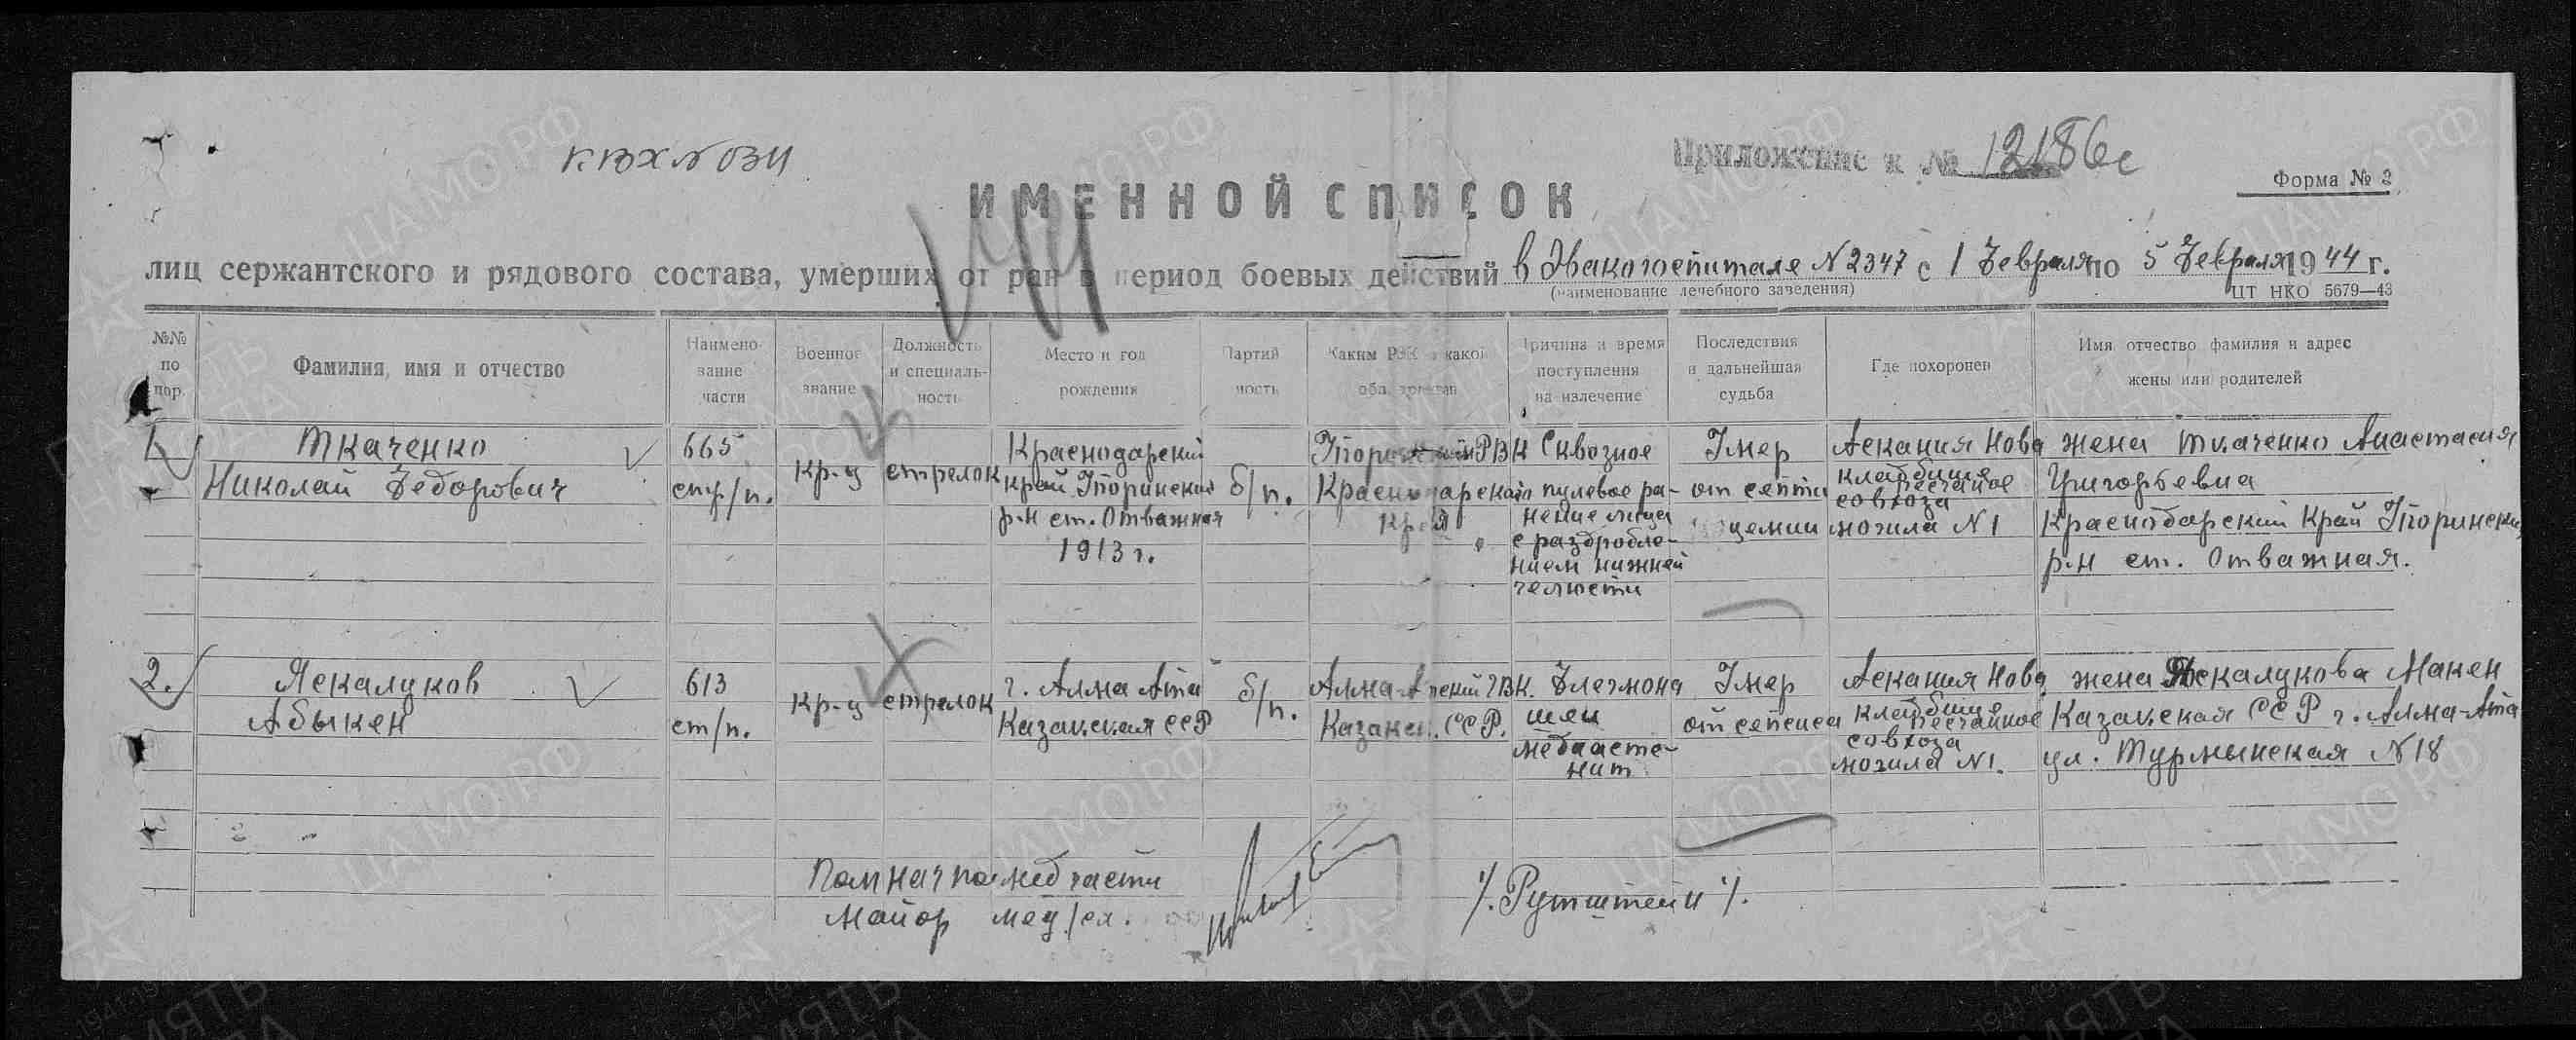 К ВХ N 0311
Приложение к № 12186с
Форма № 2
ИМЕННОЙ СПИСОК
лиц сержантского и рядового состава, умерших от ран в период боевых действий в Эвакогоспитале N 2347 с 1 Февраля по 5 Февраля 1944 г.
(наименование лечебного заведения)
ЦТ НКО 5679—43
№№ по пор.
Фамилия, имя и отчество
Наименование части
Военное звание
Должность и специальность
Место и год рождения
Партийность
Каким РВК и какой обл. призван
Причина и время поступления на излечение
Последствия и дальнейшая судьба
Где похоронен
Имя, отчество фамилия и адрес жены или родителей
1.
Ткаченко
Николай Федорович
665
стр/п.
Кр-ц
стрелок
Краснодарский
край Упоринский
р-н ст. Отважная
1913 г.
б/п.
РВК
Краснодарского
Края
Сквозное
пулевое ра-
нение лица
с раздробле-
нием нижней
челюсти
Умер
от септи
цемии
Аскания Нова
кладбище
песчаное
совхоза
могила N 1
жена Ткаченко Анастасия
Григорьевна
Краснодарский Край Упоринский
р-н ст. Отважная.
2.
Яскалуков
Абыкен
613
ст/п.
Кр-ц
стрелок
г. Алма Ата
Казакская ССР
б/п.
Алма-Атинский ГВК.
Казакск. ССР.
Флегмона
шеи
медиасте-
нит
Умер
от сепсиса
Аскания Нова
кладбище
песчаное
совхоза
могила N 1.
жена Яскалукова Макен
Казакская ССР г. Алма-Ата
ул. Турмынская N 18
Помнач по медчасти
майор мед/сл.
/. Рутштейн /.
ЦАМО РФ
ПАМЯТЬ